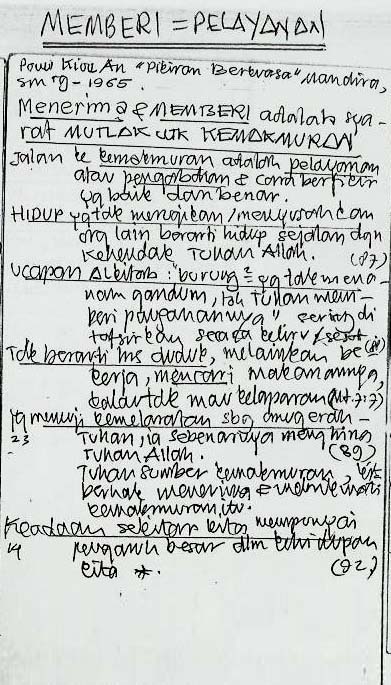 MEMBERI = PELAYANAN
Pouw Kioe An "Pikiran Berkuasa" Mandira,
smrg - 1965.
Menerima & MEMBERI adalah sya-
rat MUTLAK utk KEMAKMURAN
Jalan ke kemakmuran adalah pelayanan
atau pengorbanan & cara berpikir
yg baik dan benar.
HIDUP yg tak merugikan/menyusahkan
org lain berarti hidup sejalan dgn
kehendak Tuhan Allah. (87)
Ucapan Alkitab: "burung2 yg tak mena-
nam gandum, toh Tuhan mem-
beri pangannya" sering di
tafsirkan secara keliru/sesat
Tdk berarti hrs duduk, melainkan be
kerja, mencari makanannya,
kalau tdk mau kelaparan (Mt. 7:7)
Yg memuji kemelaratan sbg anugerah
23
Tuhan, ia sebenarnya menghina
Tuhan Allah. (89)
Tuhan sumber kemakmuran, kita
berhak menerima & menikmati
kemakmuran itu.
Keadaan sekitar kita mempunyai
14 pengaruh besar dlm kehidupan
kita *. (92)